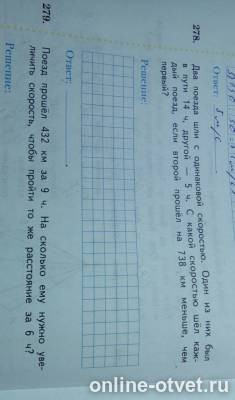 278. Два поезда шли с одинаковой скоростью. Один из них был
в пути 14 ч, другой — 5 ч. С какой скоростью шёл каж-
дый поезд, если второй прошёл на 738 км меньше, чем
первый?
Решение:
Ответ:
279. Поезд прошёл 432 км за 9 ч. На сколько ему нужно уве-
личить скорость, чтобы пройти то же расстояние за 6 ч?
Решение:
online-otvet.ru